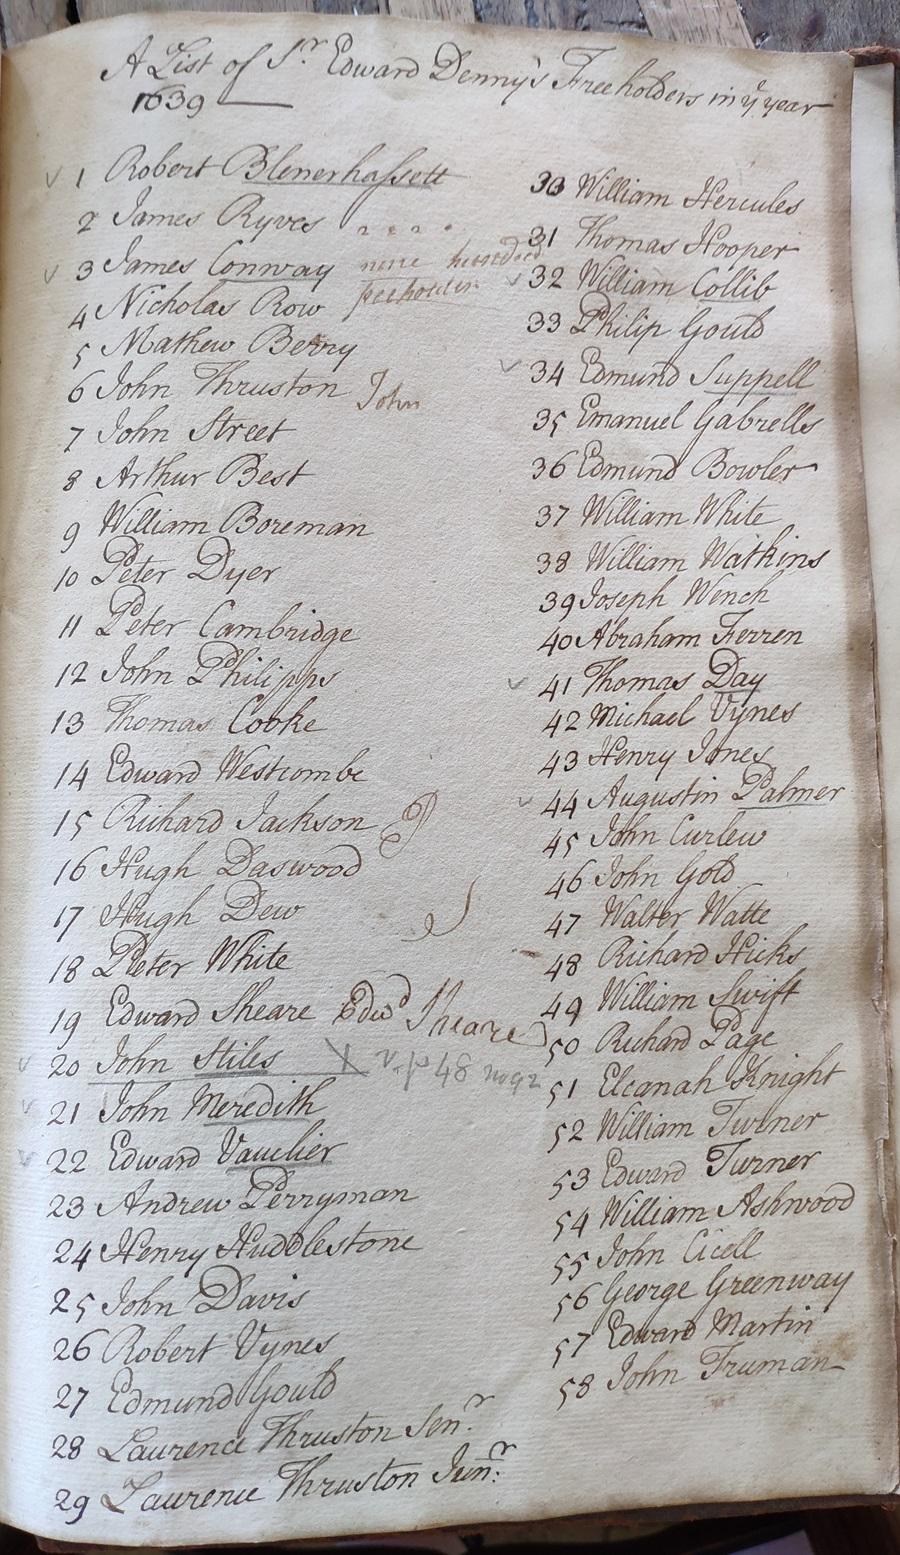 A List of Sr. Edward Denny's Freeholders in ye year
1639
1 Robert Blenerhassett
2 James Ryves
3 James Conway nine hundred
4 Nicholas Row freeholders
5 Mathew Berry
6 John Thruston John
7 John Street
8 Arthur Best
9 William Boreman
10 Peter Dyer
11 Peter Cambridge
12 John Philipps
13 Thomas Cooke
14 Edward Westcombe
15 Richard Jackson
16 Hugh Daswood
17 Hugh Dew
18 Peter White
19 Edward Sheare Edwd Sheare
20 John Stiles X v. p 48 no 92
21 John Meredith
22 Edward Vauclier
23 Andrew Perryman
24 Henry Huddlestone
25 John Davis
26 Robert Vynes
27 Edmund Gould
28 Laurence Thruston Senr.
29 Laurence Thruston Junr:
30 William Hercules
31 Thomas Hooper
32 William Collib
33 Philip Gould
34 Edmund Suppell
35 Emanuel Gabrells
36 Edmund Bowler
37 William White
38 William Watkins
39 Joseph Wench
40 Abraham Ferren
41 Thomas Day
42 Michael Vynes
43 Henry Jones
44 Augustin Palmer
45 John Curlew
46 John Gold
47 Walter Watte
48 Richard Hicks
49 William Swift
50 Richard Page
51 Elcanah Knight
52 William Turner
53 Edward Turner
54 William Ashwood
55 John Cicell
56 George Greenway
57 Edward Martin
58 John Truman